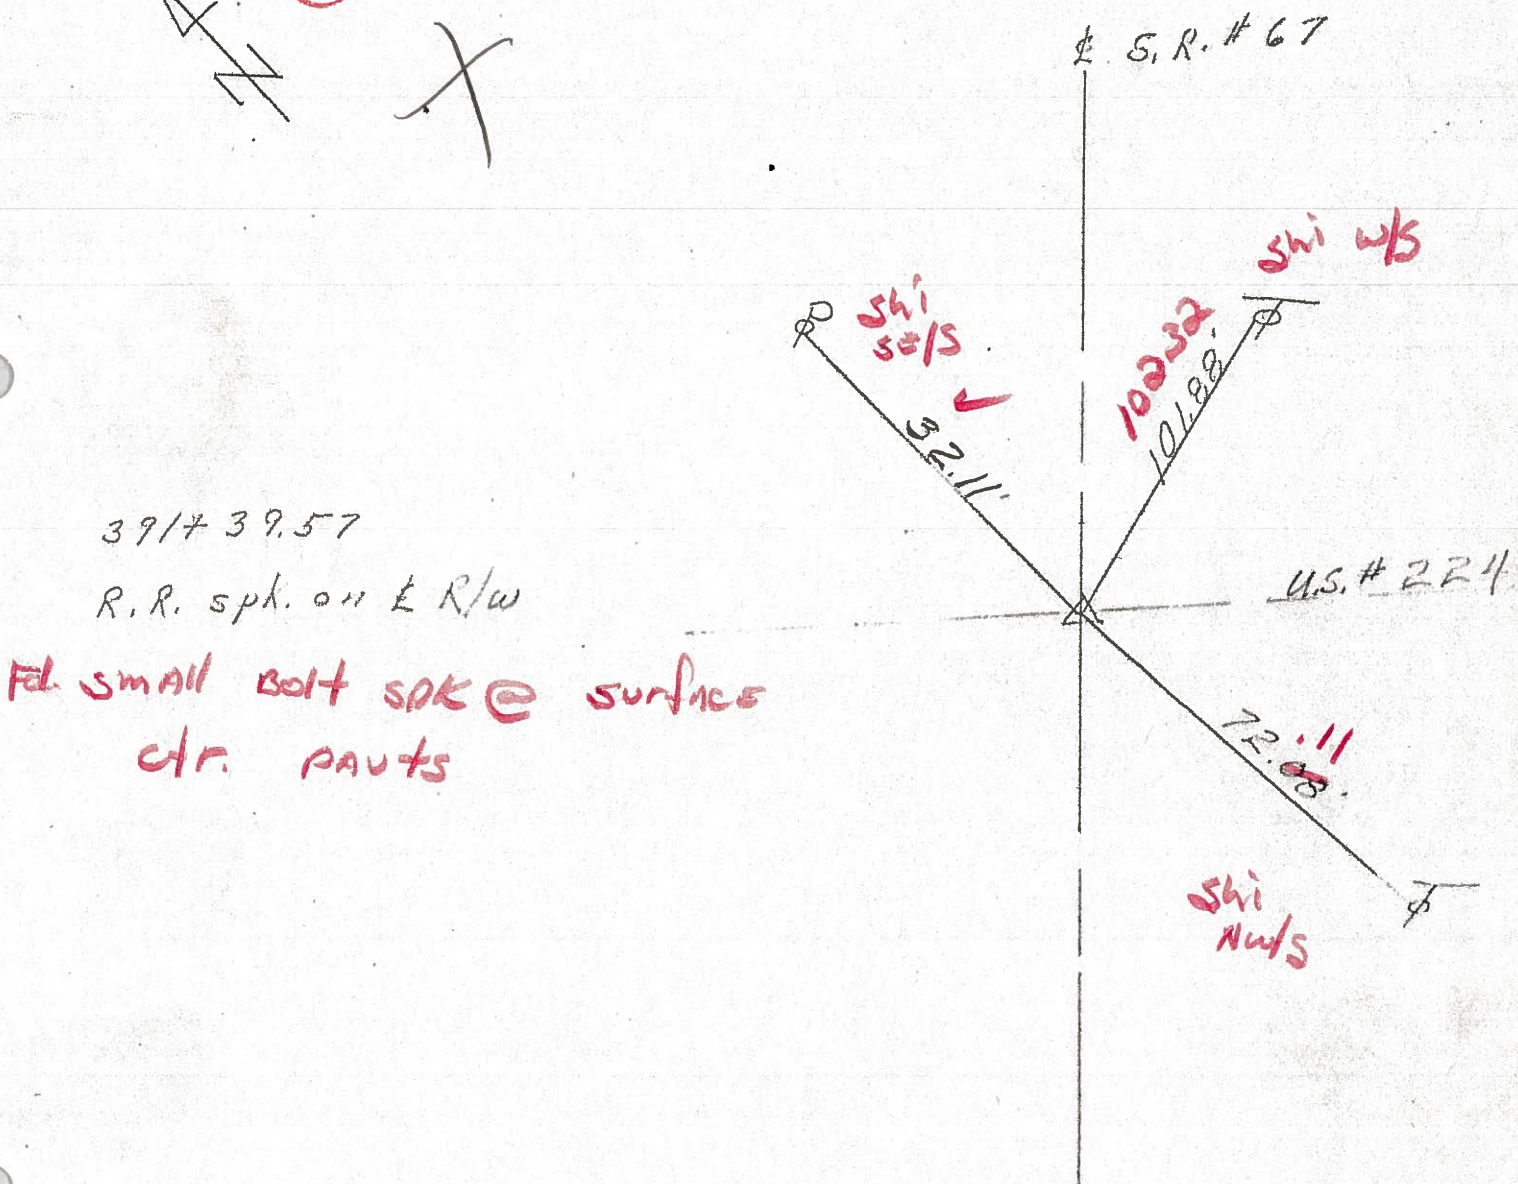 N
X
℄ S.R. # 67
shi w/s
shi
SE/S
10232
101.88'
32.11'
391+39.57
R.R. spk. on ℄ R/W
U.S. # 224
Fd. small Bolt spk @ surface
ctr. pavts
72.08'
.11
shi
NW/S